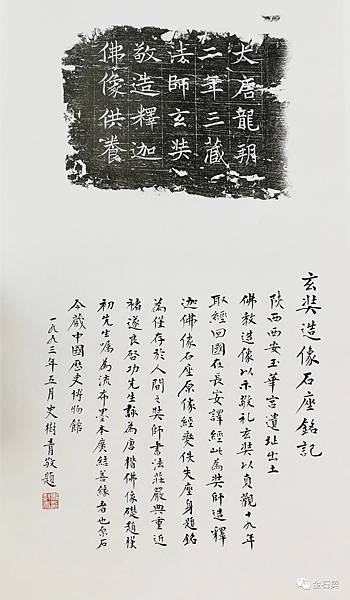 大唐龍朔
二年三藏
法師玄奘
敬造釋迦
佛像供養
玄奘造像石座銘記
陝西西安玉華宮遺址出土
佛教造像以示敬礼玄奘以貞觀十九年
取經回國在長安譯經此為奘師造釋
迦佛像石座原像經變佚失座身題銘
為僅存於人間之奘師書法莊嚴典重近
褚遂良啓功先生為唐楷佛像礎趙樸
初先生囑為流布墨本廣結善緣者也石
今藏中國歷史博物館
一九九三年五月史樹青敬題
金石契